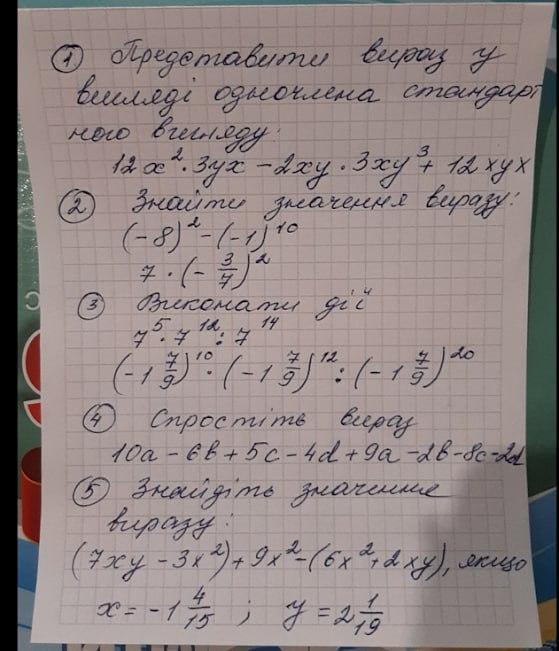 ① Представити вираз у
вигляді одночлена стандарт
ного вигляду:
12x²·3yx – 2xy·3xy³ + 12xyx
② Знайти значення виразу:
(-8)² – (-1)¹⁰
7 · (- 3/7)²
③ Виконати дії
7⁵ · 7¹² : 7¹⁴
(-1 7/9)¹⁰ · (-1 7/9)¹² : (-1 7/9)²⁰
④ Спростіть вираз
10a – 6b + 5c – 4d + 9a – 2b – 8c – 2d
⑤ Знайдіть значення
виразу:
(7xy – 3x²) + 9x² – (6x² + 2xy), якщо
x = -1 4/15 ; y = 2 1/19